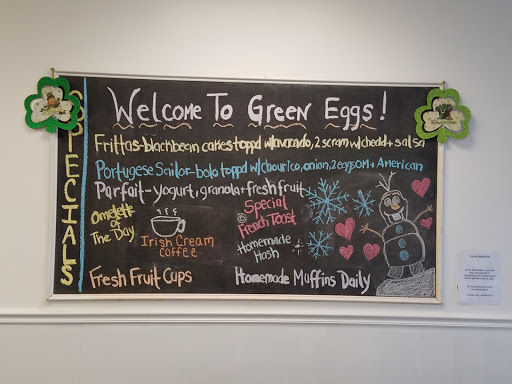 SPECIALS
Welcome To Green Eggs!
Frittas-blackbean cakes toppd w/avocado, 2 scram w/chedd + salsa
Portugese Sailor-bolo toppd w/chourico, onion, 2 eggs OM + American
Parfait-yogurt, granola + fresh fruit
Omelette
of
The Day
Irish Cream
Coffee
Special
French Toast
Homemade
Hash
Fresh Fruit Cups
Homemade Muffins Daily